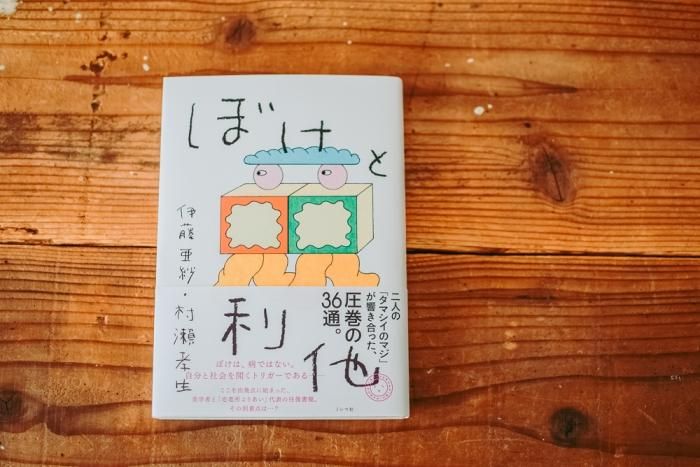 ぼけと
利他
伊藤亜紗・村瀬孝生
二人の
「タマシイのマジ」
が響き合った、
圧巻の
36通。
ぼけは、病ではない。
自分と社会を開くトリガーである――
ここを出発点に始まった、
美学者と「宅老所よりあい」代表の往復書簡。
その到着点は…？
ミシマ社